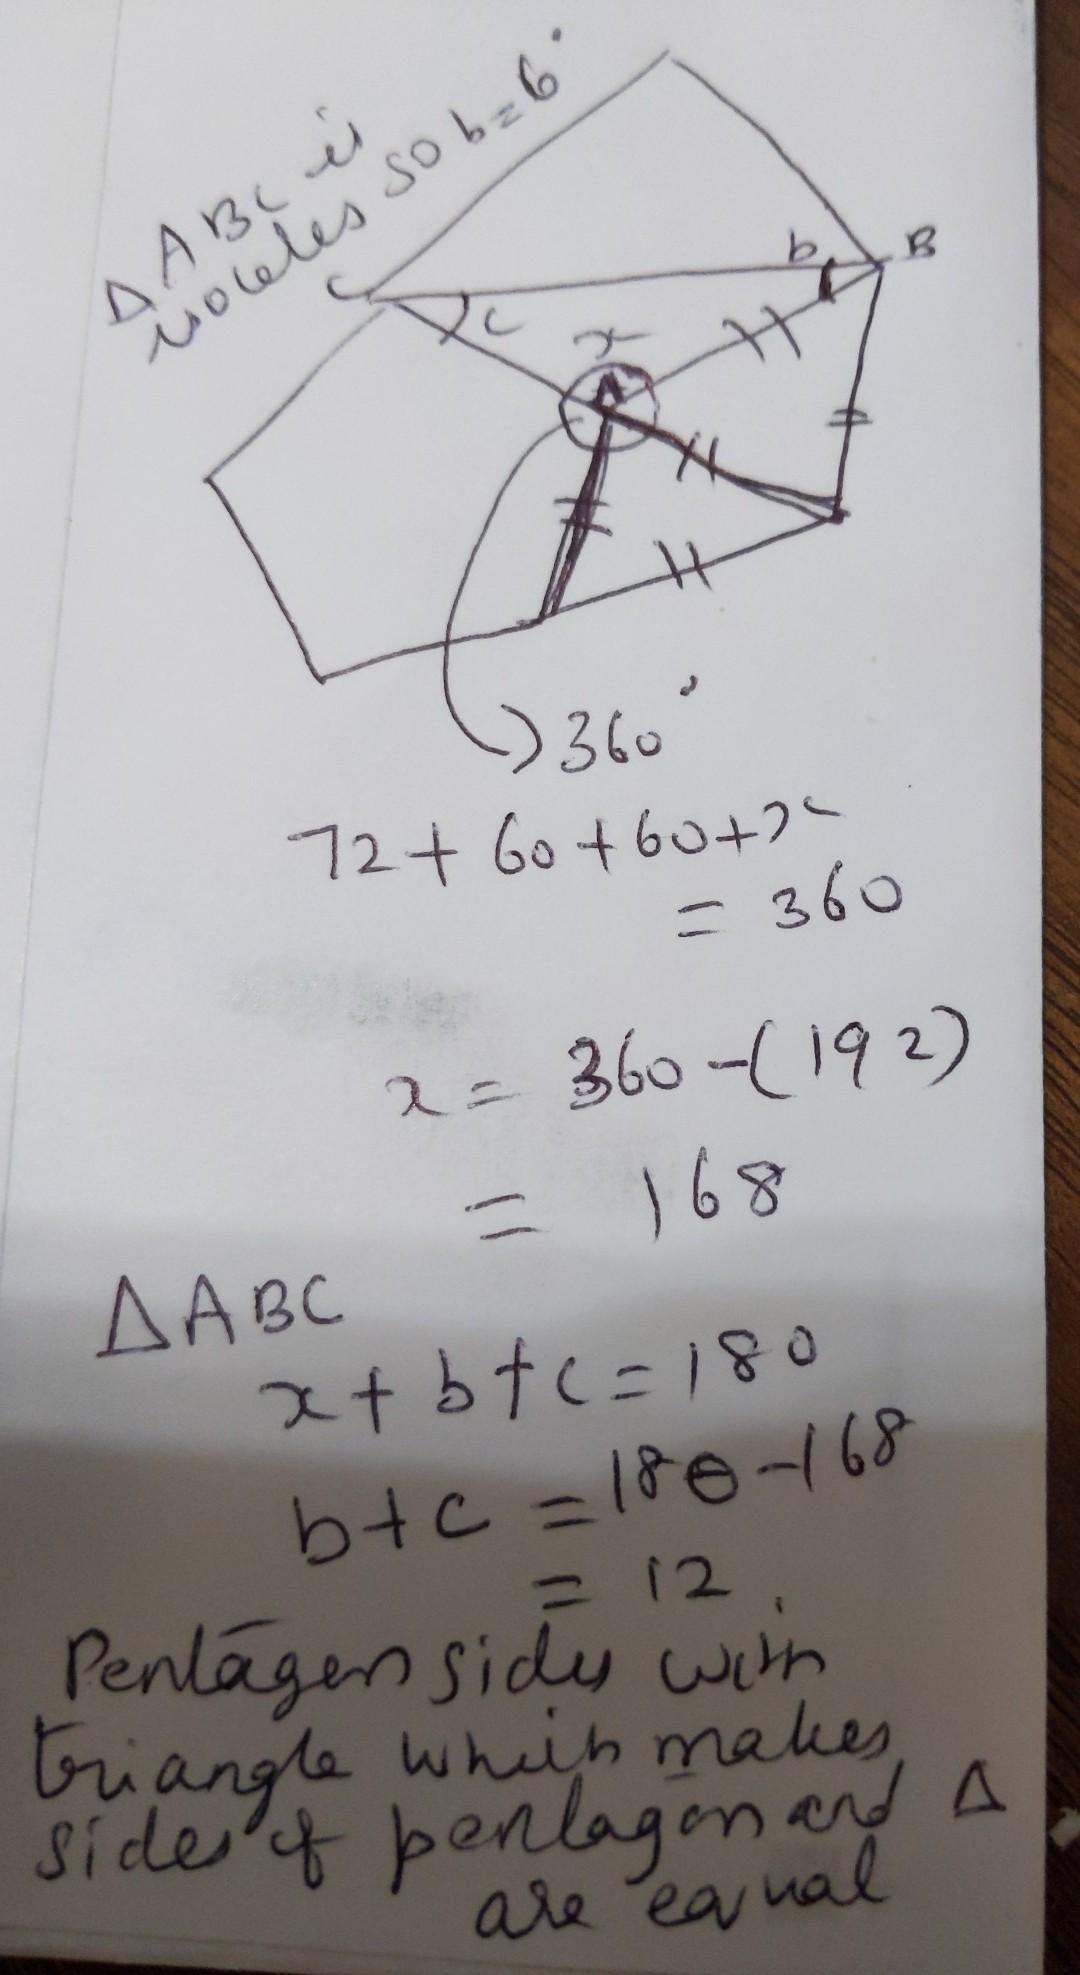 Δ ABC is
isoceles so b=6°
C
c
b
B
x
A
360°
72+60+60+x
= 360
x = 360-(192)
= 168
ΔABC
x+b+c=180
b+c = 180-168
= 12.
Pentagon sides with
triangle which makes
sides of pentagon and Δ
are equal